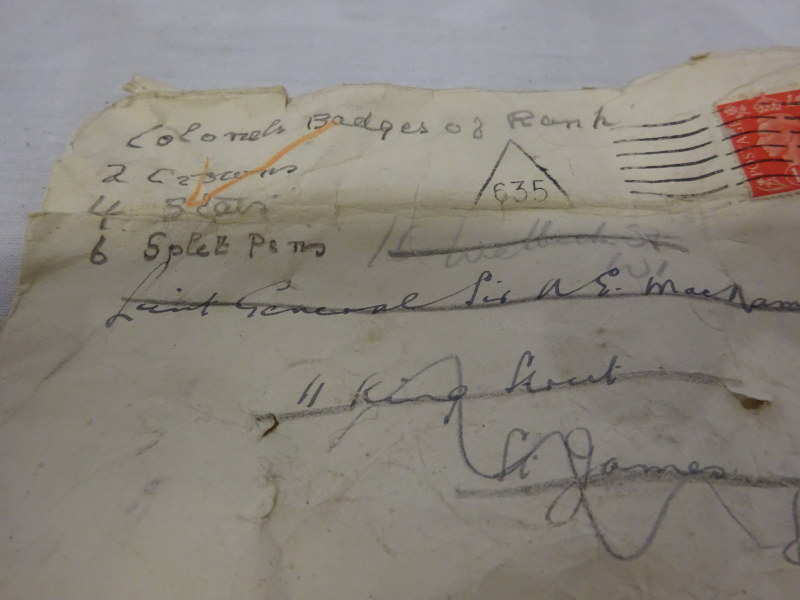 Colonels Badges of Rank
2 Crowns
4 Stars
6 Split Pens
635
Lieut General Sir A. E. MacNam
11 King Street
St. James